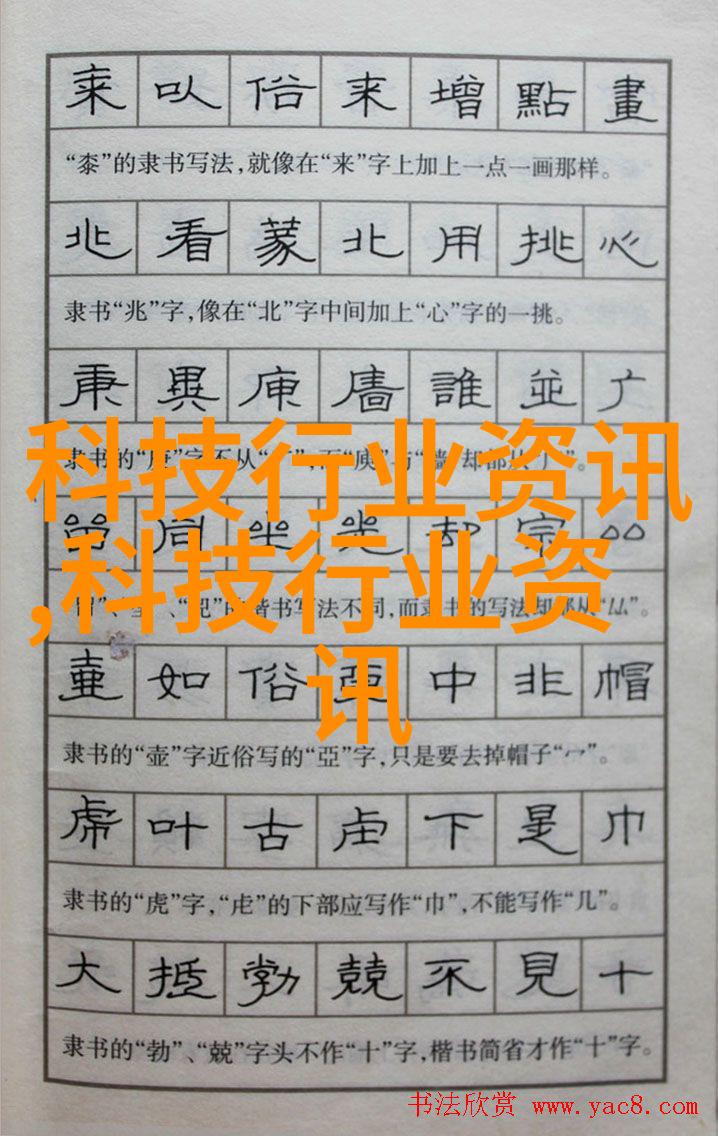 桼以俗来增點畫
“桼”的隶书写法,就像在“来”字上加上一点一画那样。
兆看蒙北用挑心
隶书“兆”字,像在“北”字中间加上“心”字的一挑。
庚異庾牆誰並广
隶书的“庚”字不从“广”,而“庾”与“墙”却都从“广”。
同坐却宗厸
的楷书写法不同,而隶书的写法却都从“厸”。
科技行业资讯
,科技行业资
讯
壺如俗亞中非帽
隶书的“壶”字近俗写的“亞”字,只是要去掉帽子“冖”。
虎叶古虍下是巾
隶书的“虎”字,“虍”的下部应写作“巾”,不能写作“几”。
大抵勃兢不見十
隶书的“勃”、“兢”字头不作“十”字,楷书简省才作“十”字。
书法欣赏 www.yac8.com